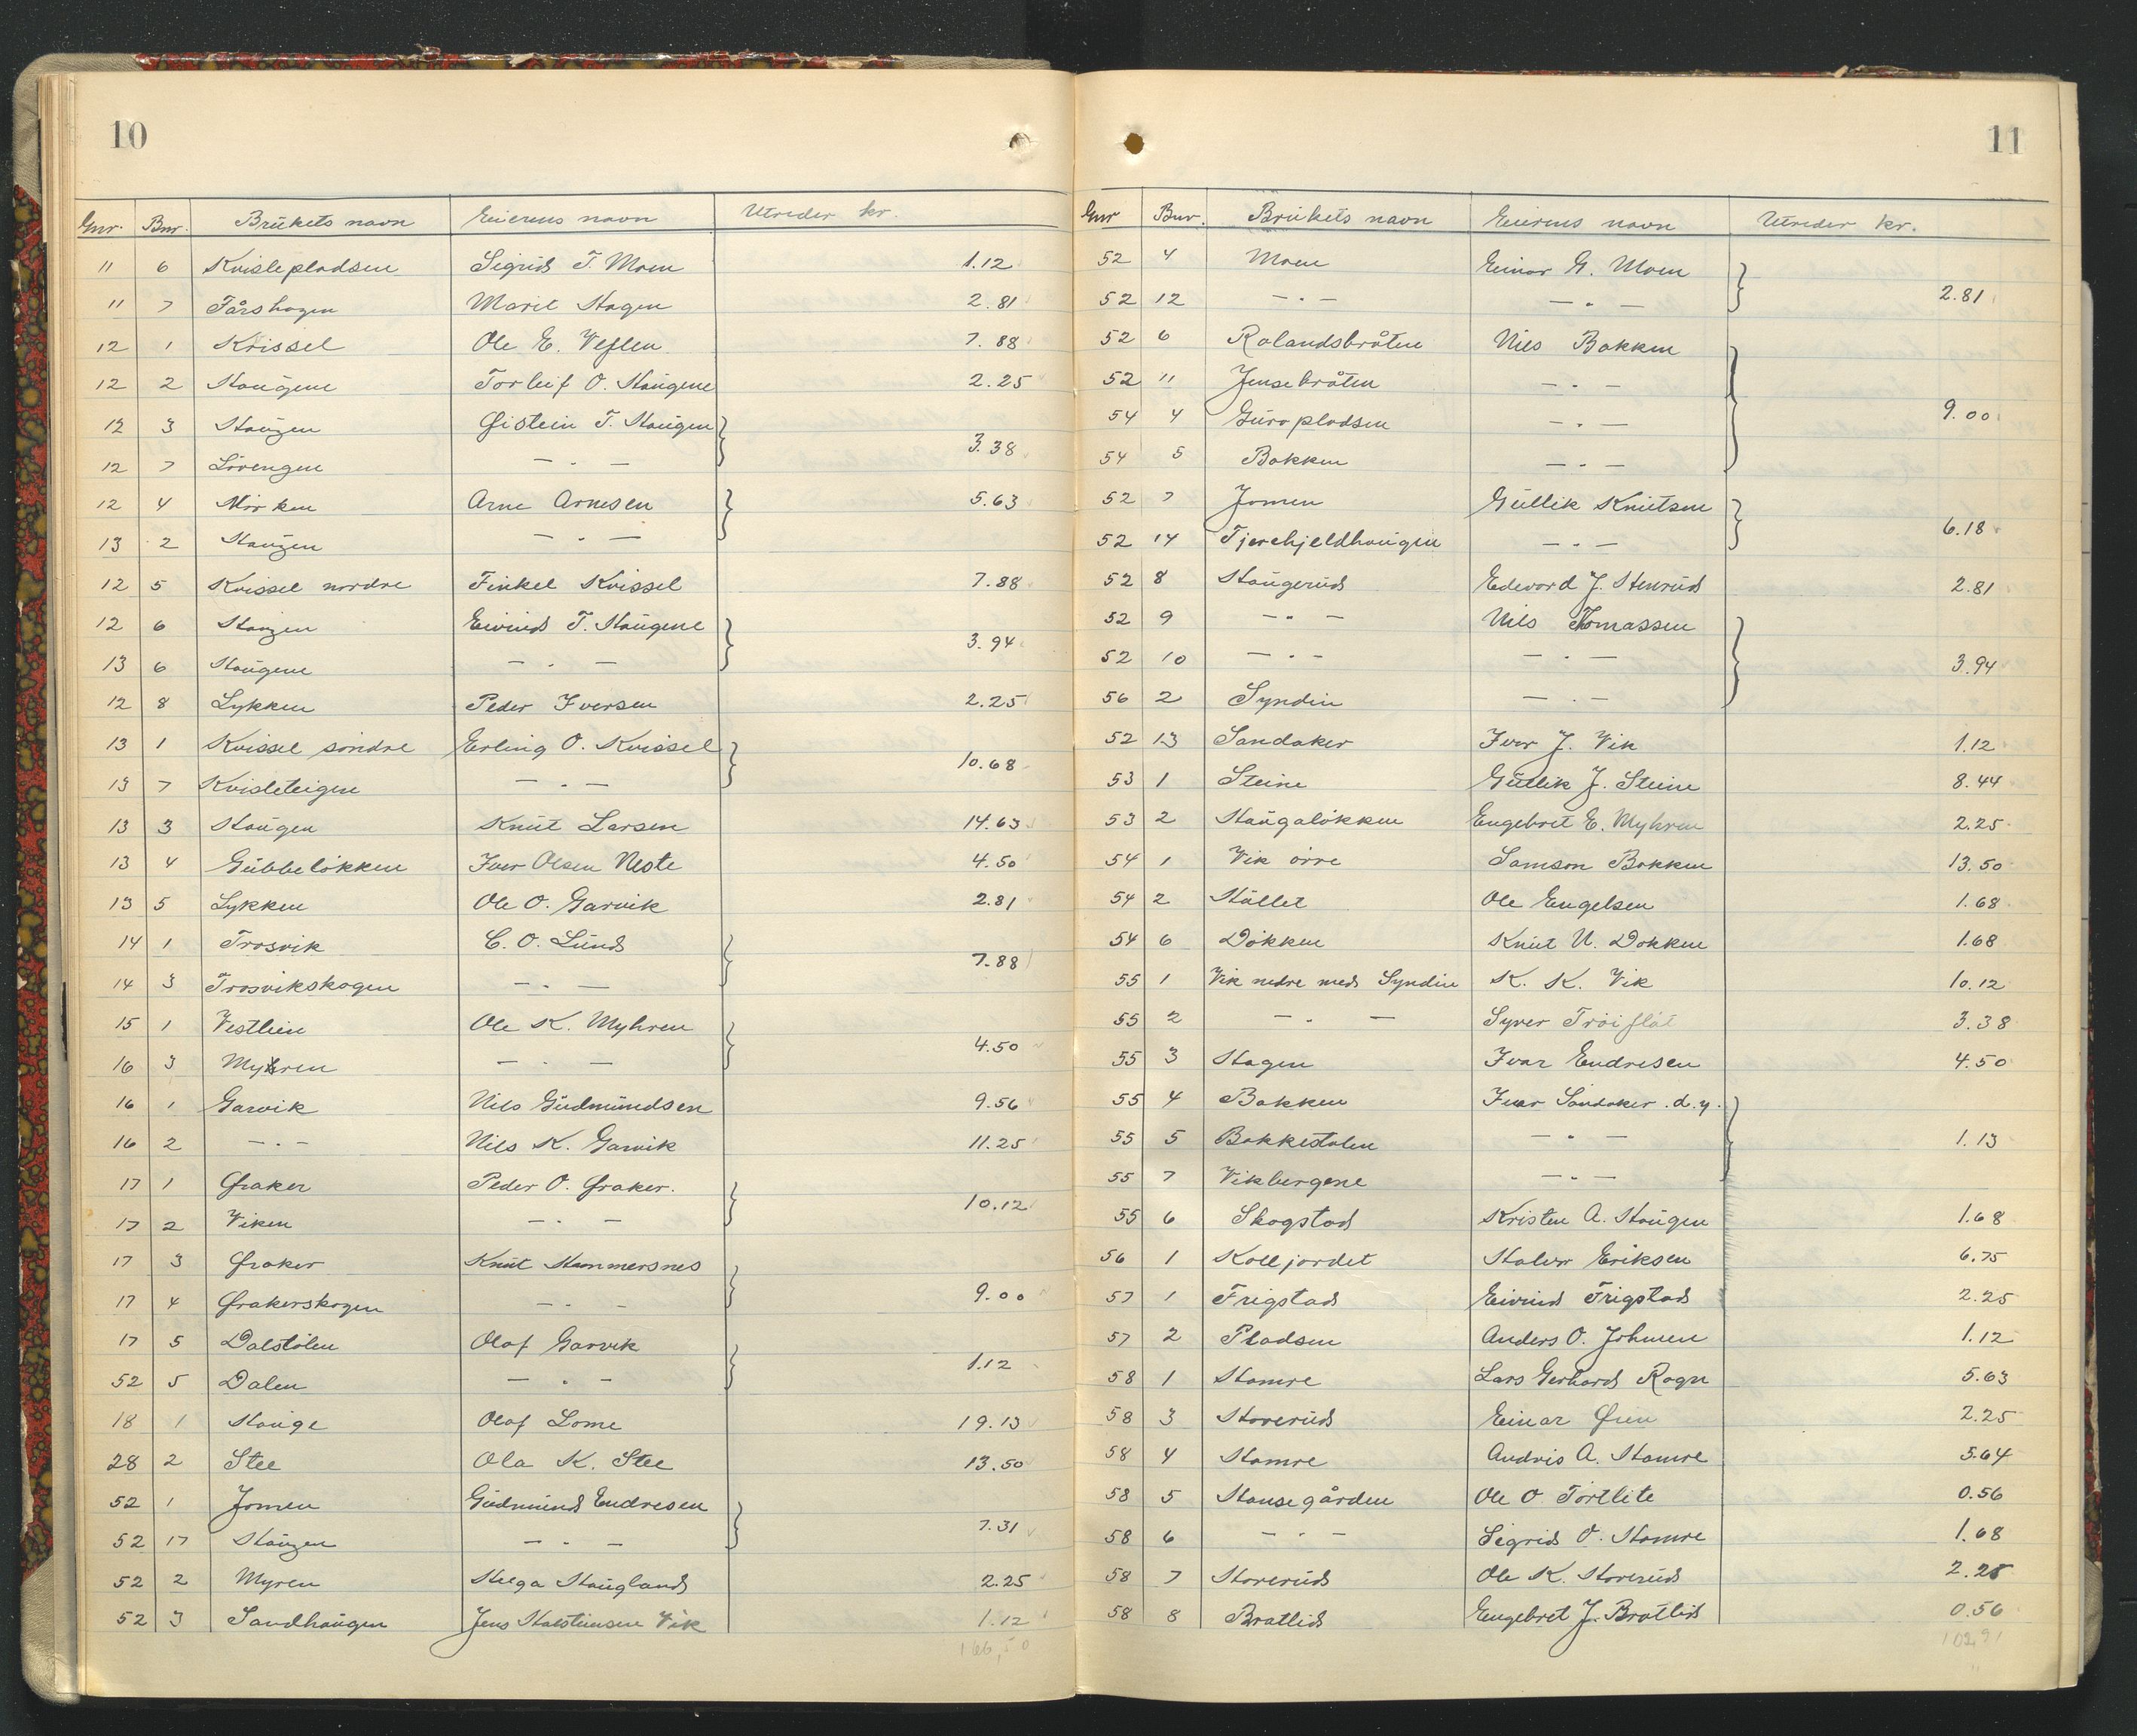 10
Gnr. Bnr. Brukets navn Eierens navn Utreder kr.
11 6 Kvislepladsen Sigrid T. Moen 1.12
11 7 Fårshagen Marit Hagen 2.81
12 1 Kvissel Ole E. Veflen 7.88
12 2 Haugene Torleif O. Haugene 2.25
12 3 Haugen Øistein T. Haugen
3.38
12 7 Lövengen — " —
12 4 Mörken Arne Arnesen 5.63
13 2 Haugen — " —
12 5 Kvissel nordre Finkel Kvissel 7.88
12 6 Haugen Eivind T. Haugene
3.94
13 6 Haugene — " —
12 8 Lykken Peder Iversen 2.25
13 1 Kvissel söndre Erling O. Kvissel
10.68
13 7 Kvisleteigen — " —
13 3 Haugen Knut Larsen 14.63
13 4 Gubbelökken Iver Olsen Neste 4.50
13 5 Lykken Ole O. Garvik 2.81
14 1 Trosvik C. O. Lund
7.88
14 3 Trosvikskogen — " —
15 1 Vestlien Ole K. Myhren
4.50
16 3 Myhren — " —
16 1 Garvik Nils Gudmundsen 9.56
16 2 — " — Nils K. Garvik 11.25
17 1 Øraker Peder O. Øraker.
10.12
17 2 Viken — " —
17 3 Øraker Knut Hammersnes
9.00
17 4 Ørakerskogen — " —
17 5 Dalstölen Olaf Garvik
1.12
52 5 Dalen — " —
18 1 Hauge Olaf Lome 19.13
28 2 Stee Ola K. Stee 13.50
52 1 Jomen Gudmund Endresen
7.31
52 17 Haugen — " —
52 2 Myren Helga Haugland 2.25
52 3 Sandhaugen Jens Halsteinsen Vik 1.12
166,50
11
Gnr Bnr. Brukets navn Eierens navn Utreder kr.
52 4 Moen Einar G. Moen
2.81
52 12 — " — — " —
52 6 Rolandsbråten Nils Bakken
52 11 Jensebråten — " —
9.00
54 4 Guropladsen — " —
54 5 Bakken — " —
52 7 Jomen Gullik Knutsen
6.18
52 14 Tjerehjeldhaugen — " —
52 8 Haugerud Edevard J. Stenrud 2.81
52 9 — " — Nils Thomassen
52 10 — " — — " — 3.94
56 2 Syndin — " —
52 13 Sandaker Iver J. Vik 1.12
53 1 Steine Gullik J. Steine 8.44
53 2 Haugalökken Engebret E. Myhren 2.25
54 1 Vik övre Samson Bakken 13.50
54 2 Hället Ole Engelsen 1.68
54 6 Dökken Knut N. Dokken 1.68
55 1 Vik nedre med Syndin K. K. Vik 10.12
55 2 — " — Syver Tröiflåt 3.38
55 3 Hagen Ivar Endresen 4.50
55 4 Bakken Ivar Sandaker d.y.
55 5 Bakkestølen — " — 1.13
55 7 Vikbergene — " —
55 6 Skogstad Kristen A. Haugen 1.68
56 1 Kolljordet Halvor Eriksen 6.75
57 1 Frigstad Eivind Frigstad 2.25
57 2 Pladsen Anders O. Johnsen 1.12
58 1 Hamre Lars Gerhard Rogn 5.63
58 3 Storerud Einar Øien 2.25
58 4 Hamre Andris A. Hamre 5.64
58 5 Hansegården Ole O. Tortlite 0.56
58 6 — " — Sigrid O. Hamre 1.68
58 7 Storerud Ole K. Storerud 2.25
58 8 Bratlid Engebret J. Bratlid 0.56
102,91